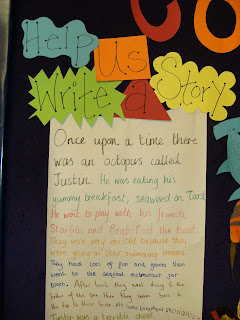 Help Us
Write a Story
Once upon a time there
was an octopus called
Justin. He was eating his
yummy breakfast, seaweed on Toast
He went to play with his friends
Starfish and Boat the boat.
They were very excited because they
were going on their swimming lessons.
They had lots of fun and games then
went to the seafood restaurant for
lunch. After lunch they went diving to the
bottom of the sea then they swam back to
the top to their home. At home
Justin was a terrible